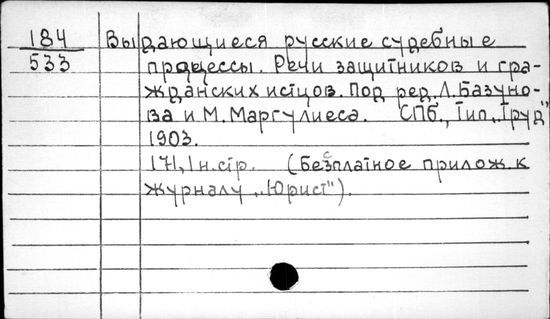 184 Выдающиеся русские судебные
533 процессы. Речи защитников и гра-
жданских истцов. Под ред. Л. Базуно-
ва и М. Маргулиеса. СПб., тип. „Труд"
1903.
171, 1 н. стр. (Бесплатное прилож. к
журналу „Юрист").